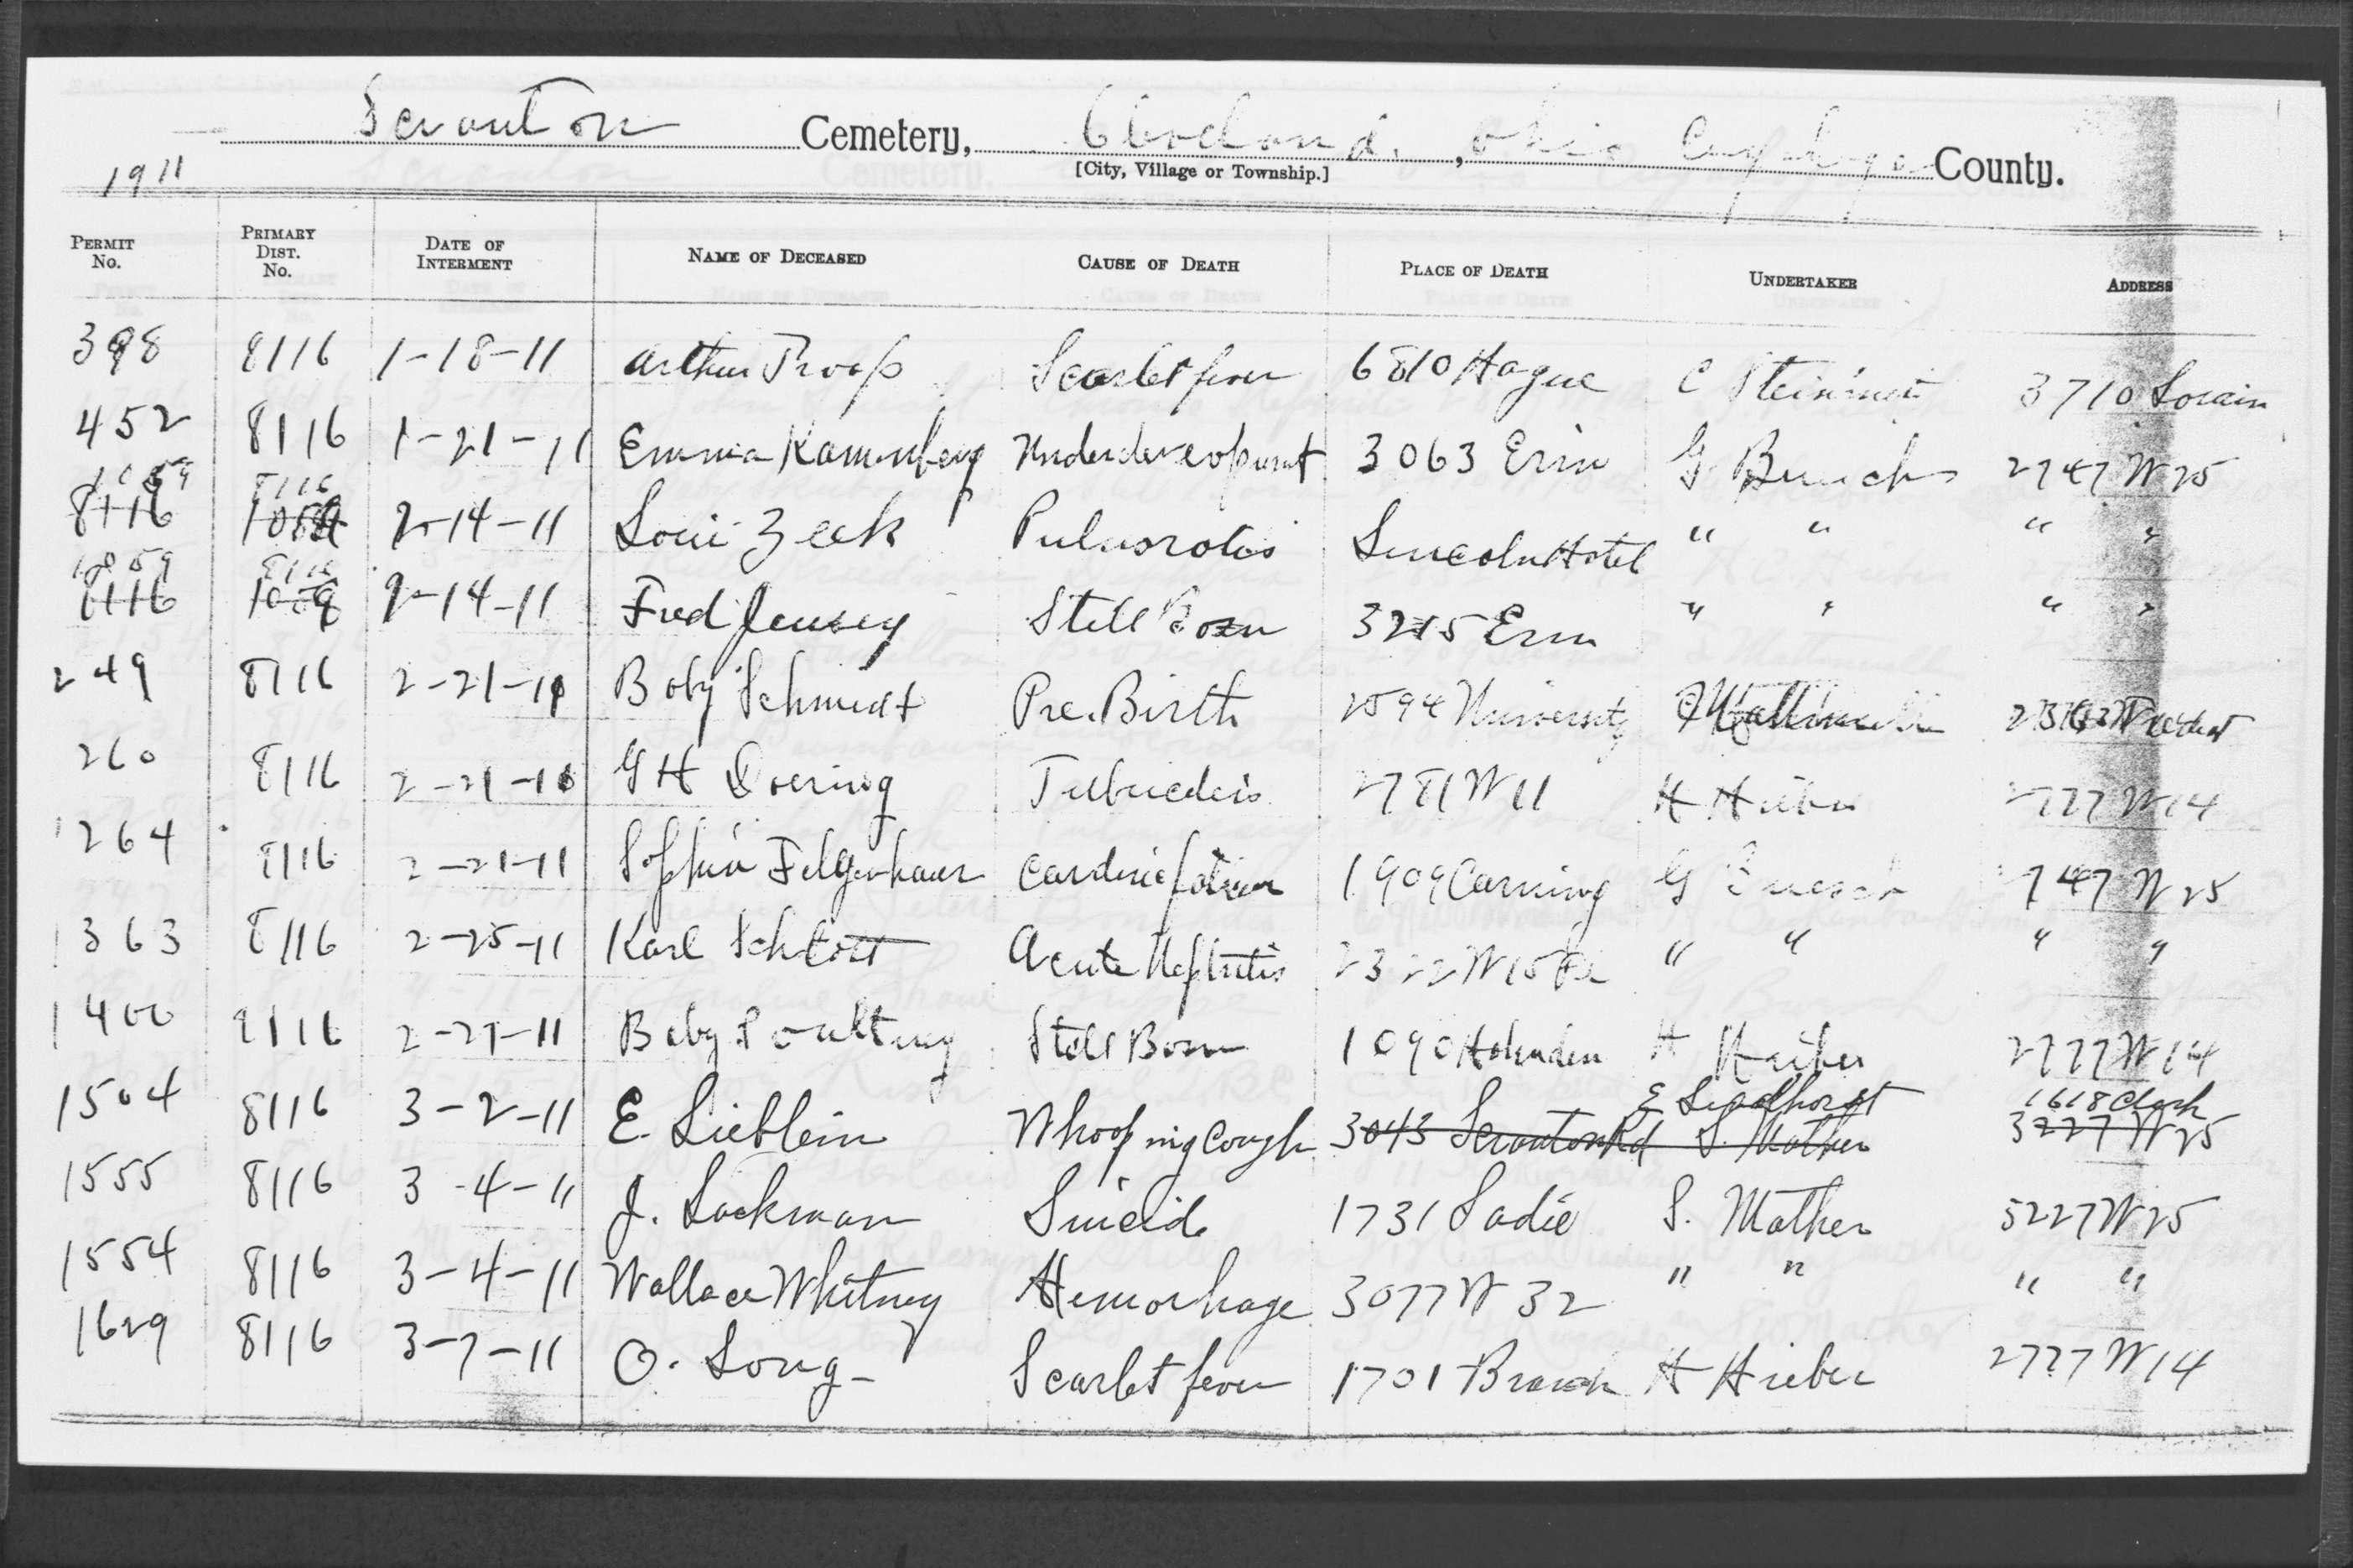 Scranton Cemetery, Cleveland, Ohio Cuyahoga County.
[City, Village or Township.]
1911
PERMIT No. PRIMARY DIST. No. DATE OF INTERMENT NAME OF DECEASED CAUSE OF DEATH PLACE OF DEATH UNDERTAKER ADDRESS
398 8116 1-18-11 Arthur Troop Scarlet fever 6810 Hague C Steinmetz 3710 Lorain
452 8116 1-21-11 Emma Underdevelopment 3063 Erin G 2747 W 25
1059 8116
8116 1059 2-14-11 Loui Zeek Lincoln Hotel " " " "
1059 8116
8116 1059 2-14-11 Fred Still Born 3215 Erin " " " "
249 8116 2-21-11 Baby Schmidt Pre. Birth 2594 University
260 8116 2-21-11 G H Doering 2781 W 11 H Hieber 2777 W 14
1264 8116 2-21-11 Sophia Felgenhauer Cardiac failure 1909 Corning G Buesch 2747 W 25
1363 8116 2-25-11 Karl Schlott Acute Nephritis 2322 W 15 Pl " " " "
1400 8116 2-27-11 Baby Poultney Still Born 1090 Holmden H Hieber 2777 W 14
E 1618 Clark
1504 8116 3-2-11 E. Lieblein Whooping Cough 3043 Scranton Rd S. Mather 3227 W 25
1555 8116 3-4-11 J. Lockman Suicide 1731 Sadie S. Mather 3227 W 25
1554 8116 3-4-11 Wallace Whitney Hemorhage 3077 W 32 " " " "
1629 8116 3-7-11 O. Long Scarlet fever 1701 Branch H Hieber 2777 W 14